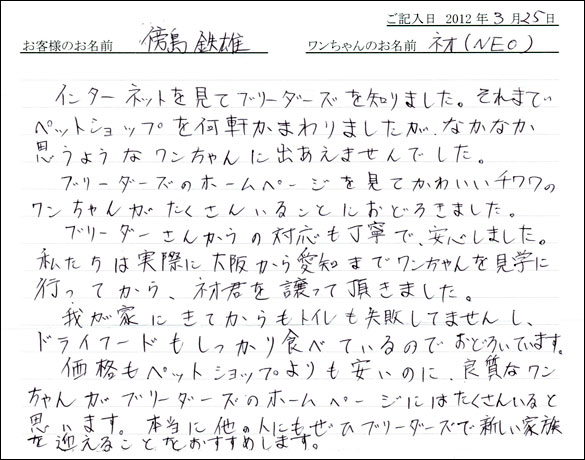 ご記入日 2012 年 3 月 25 日
お客様のお名前 傍島 鉄雄 ワンちゃんのお名前 ネオ(NEO)
インターネットを見てブリーダーズを知りました。それまで
ペットショップを何軒かまわりましたが、なかなか
思うようなワンちゃんに出あえませんでした。
ブリーダーズのホームページを見てかわいいチワワの
ワンちゃんがたくさんいることにおどろきました。
ブリーダーさんからの対応も丁寧で、安心しました。
私たちは実際に大阪から愛知までワンちゃんを見学に
行ってから、ネオ君を譲って頂きました。
我が家にきてからもトイレも失敗してませんし、
ドライフードもしっかり食べているのでおどろいています。
価格もペットショップよりも安いのに、良質なワン
ちゃんがブリーダーズのホームページにはたくさんいると
思います。本当に他の人にもぜひブリーダーズで新しい家族
を迎えることをおすすめします。